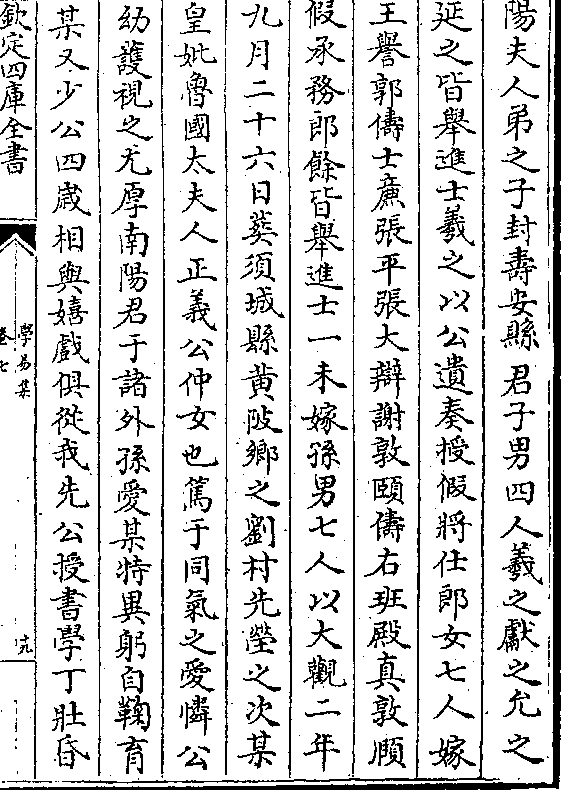 陽夫人弟之子封壽安縣君子男四人羲之獻之允之
延之皆舉進士羲之以公遺奏授假將仕郎女七人嫁
王譽郭儔士廌張平張大辯謝敦頤儔右班殿真敦願
假承務郎餘皆舉進士一未嫁孫男七人以大觀二年
九月二十六日葬須城縣黄陂鄉之劉村先塋之次某
皇妣魯國太夫人正義公仲女也篤于同氣之愛憐公
幼䕶視之尤厚南陽君于諸外孫愛某特異躬自鞠育
某又少公四歳相與嬉戲俱從我先公授書學丁壯昏
欽定四庫全書
學易集
卷七
十九